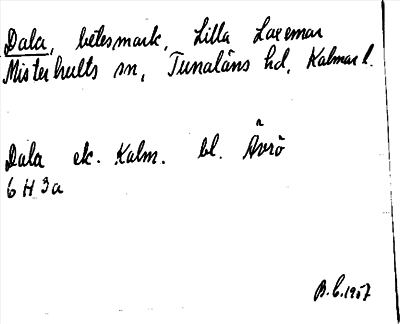 Dala, betesmark, Lilla Laxemar
Misterhults sn, Tunaläns hd, Kalmar l.
Dala ek. Kalm. bl. Ävrö
6 H 3a
B.C. 1957